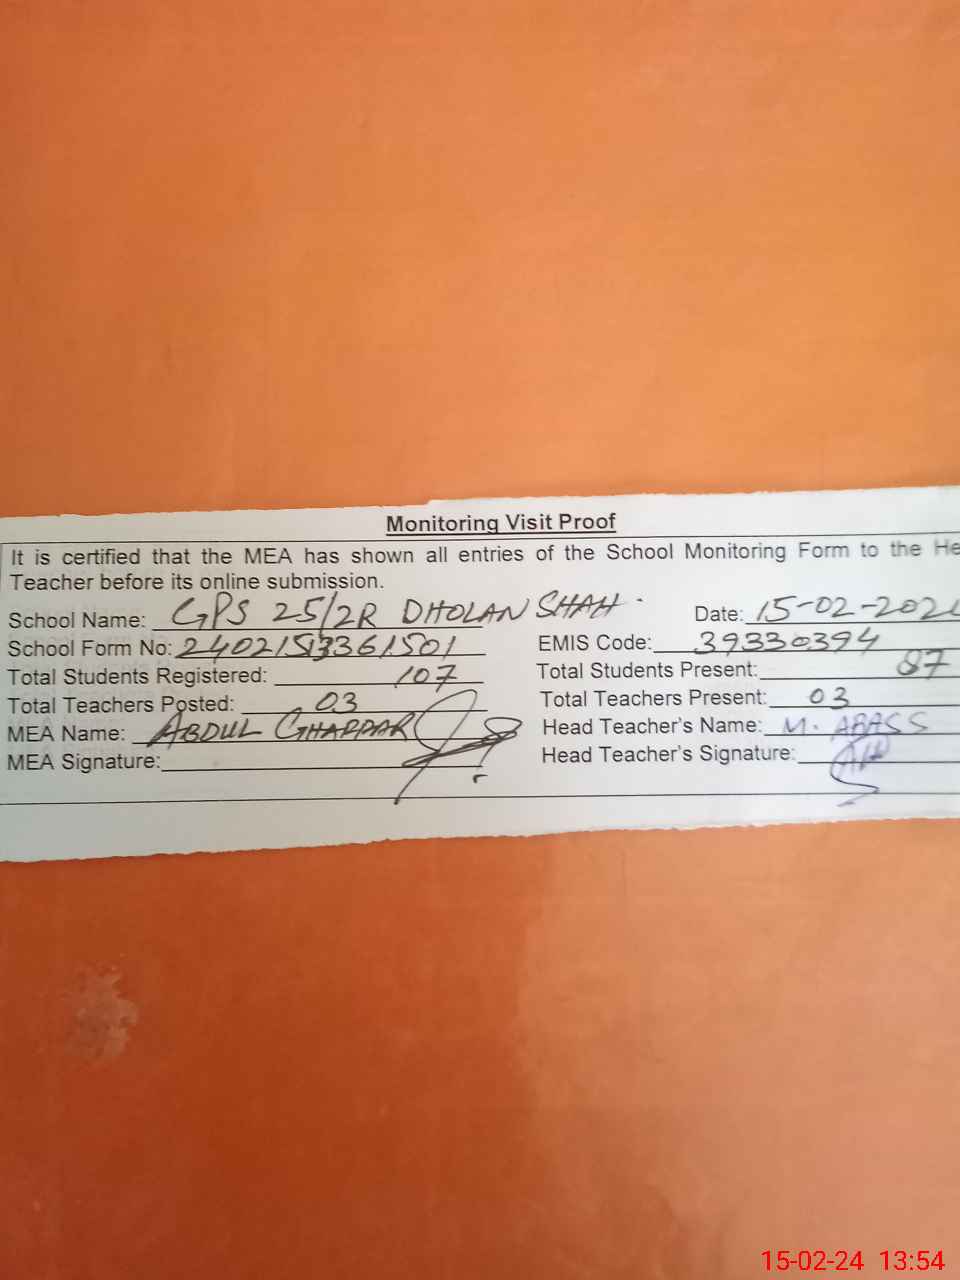 Monitoring Visit Proof
It is certified that the MEA has shown all entries of the School Monitoring Form to the He
Teacher before its online submission.
School Name: GPS 25/2R DHOLAN SHAH. Date: 15-02-202
School Form No: EMIS Code: 39330394
Total Students Registered: 107 Total Students Present: 87
Total Teachers Posted: 03 Total Teachers Present: 03
MEA Name: ABDUL GHAFFAR Head Teacher's Name: M. ABASS
MEA Signature: Head Teacher's Signature:
15-02-24 13:54